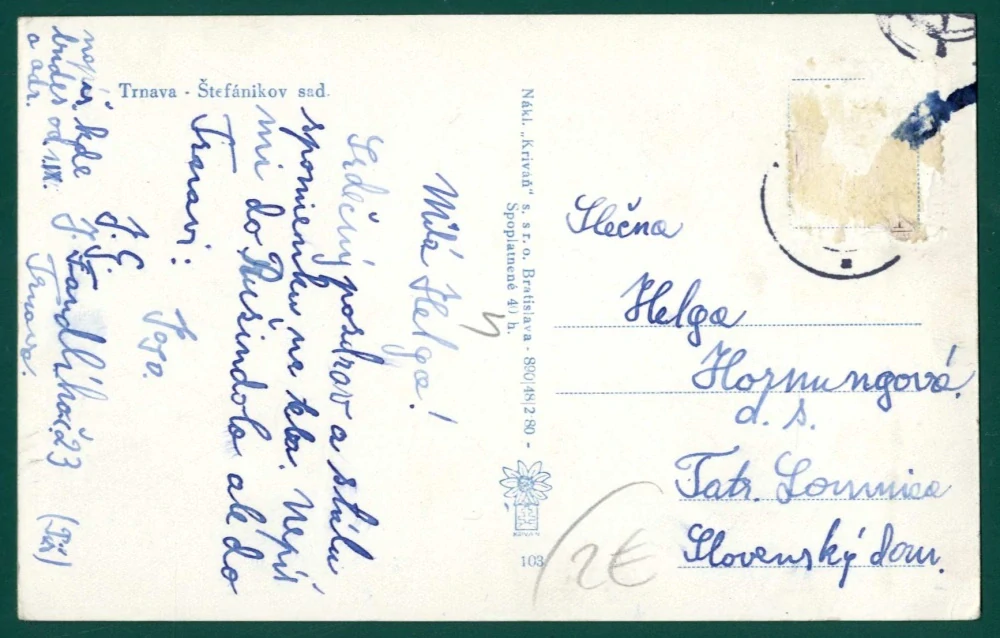 Trnava - Štefánikov sad.
Milá Helga!
Srdečný pozdrav a stálu
spomienku na kba. Nepíš
mi do Ružindola ale do
Trnavi:
Jojo.
J. G.
J. Fándliho č. 23
Trnava.
(Píš)
napíš kde
budeš od 1.IX.
a adr.
Nákl. „Kriváň" s. s r. o. Bratislava - 890|48|2-80 -
Spoplatnené 40 h.
Slečna
Helga
Hornungová.
d. s.
Tatr. Lomnica
Slovenský dom.
103
2€